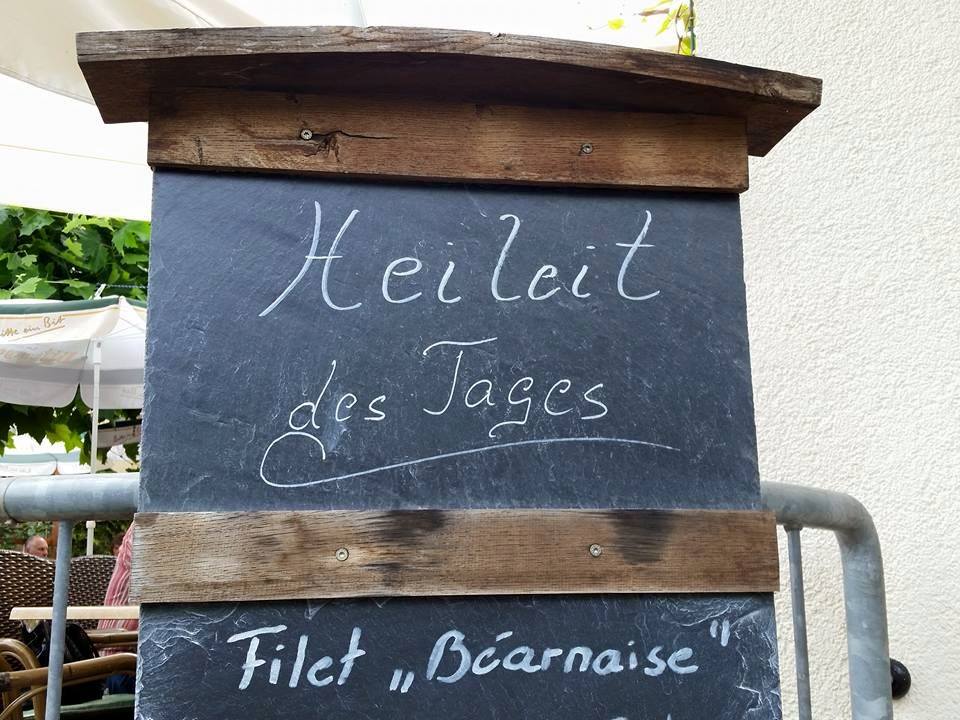 Heileit
des Tages
Filet „Béarnaise"
itte ein Bit